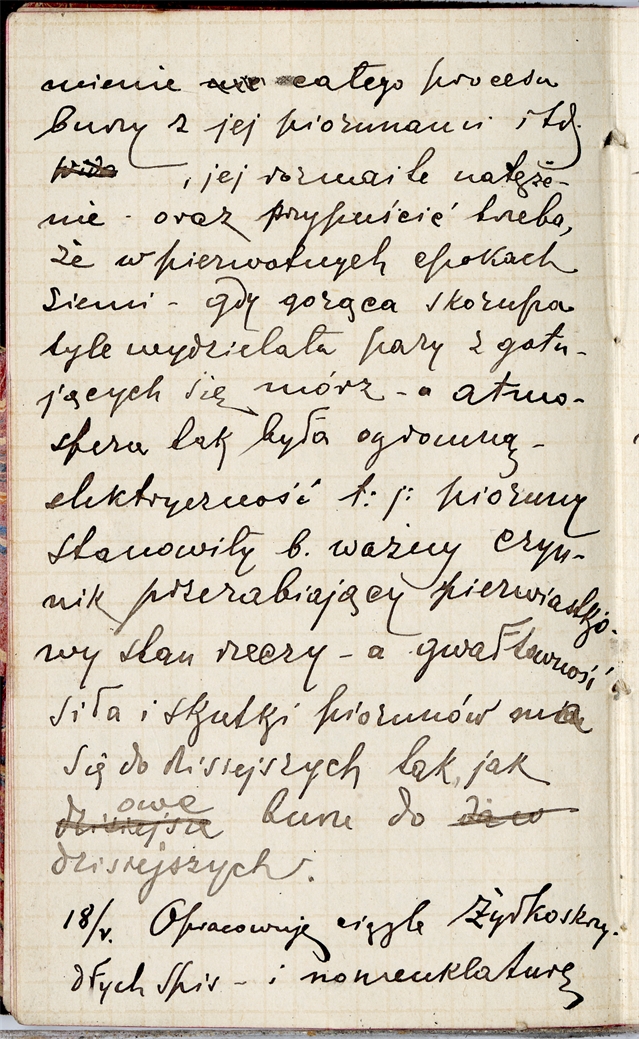 mienie całego procesu
burzy z jej piorunami i td.
, jej rozmaite natęże-
nie - oraz przypuścić trzeba,
że w pierwotnych epokach
ziemi - gdy gorąca skorupa
tyle wydzielała pary z gotu-
jących się mórz - a atmo-
sfera tak była ogromną -
elektryczność t: j: pioruny
stanowiły b. ważny czyn-
nik przerabiający pierwiastko-
wy stan rzeczy - a gwałtowność
siła i skutki piorunów ma
się do dzisiejszych tak, jak
owe
dzisiejsze burze do
dzisiejszych.
18/V. Opracowuję ciągle Żyłkoskrzy-
dłych spis - i nomenklaturę